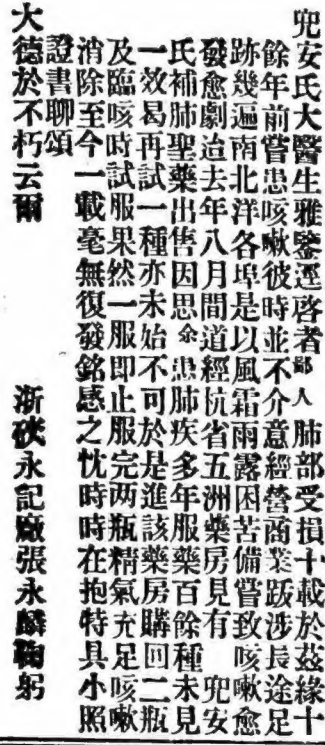 兜安氏大醫生雅鑒逕啓者鄙人肺部受損十載於茲緣十
餘年前嘗患咳嗽彼時並不介意經營商業跋涉長途足
跡幾遍南北洋各埠是以風霜雨露困苦備嘗致咳嗽愈
發愈劇迨去年八月間道經杭省五洲藥房見有 兜安
氏補肺聖藥出售因思余患肺疾多年服藥百餘種未見
一效曷再試一種亦未始不可於是進該藥房購回二瓶
及臨咳時試服果然一服即止服完两瓶精氣充足咳嗽
消除至今一載毫無復發銘感之忱時時在抱特具小照
證書聊頌
大德於不朽云爾 浙硤永記廠張永麟鞠躬